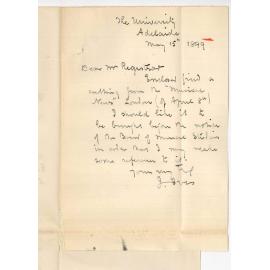 The University
Adelaide
May 15th 1899
Dear Mr Registrar
Enclosed find a
cutting from the "Musical
News" London (of April 8th)
I should like it to
be brought before the notice
of the Board of Musical Studies
in order that I may make
some reference to it.
Yours very
J. Ives